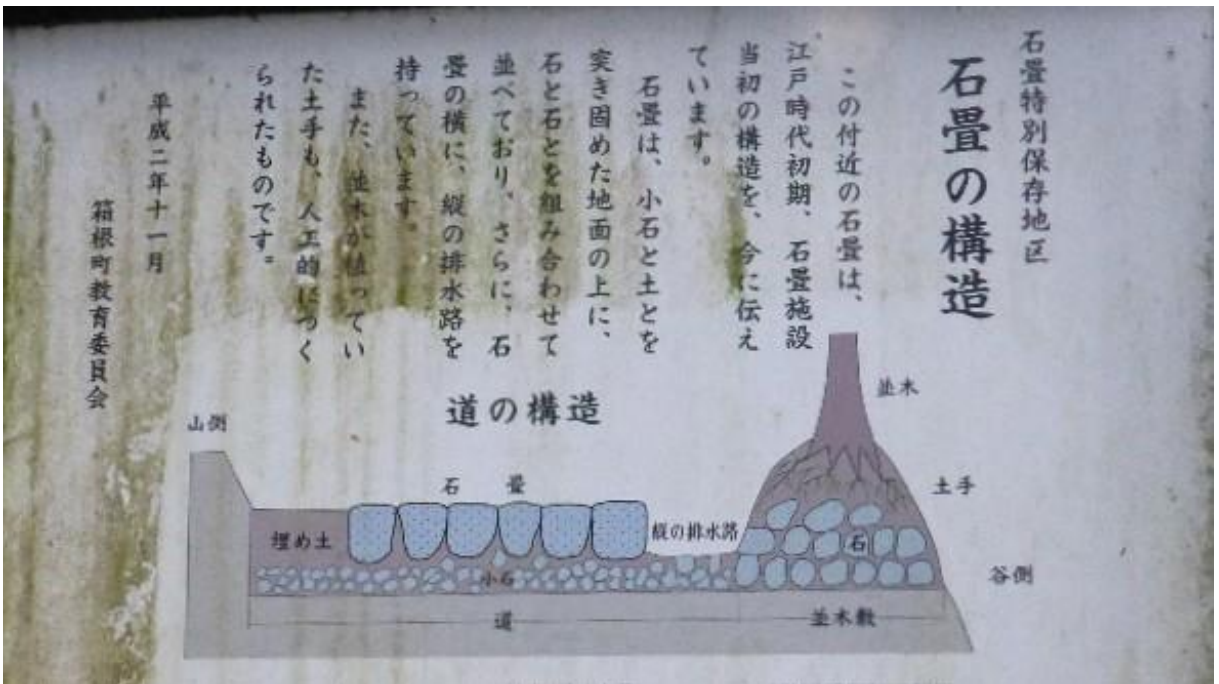 石畳特別保存地区
石畳の構造
この付近の石畳は、
江戸時代初期、石畳施設
当初の構造を、今に伝え
ています。
石畳は、小石と土とを
突き固めた地面の上に、
石と石とを組み合わせて
並べており、さらに、石
畳の横に、縦の排水路を
持っています。
また、並木が植ってい
た土手も、人工的につく
られたものです。
平成二年十一月
箱根町教育委員会
道の構造
山側
石畳
並木
土手
埋め土
縦の排水路
石
小石
谷側
道
並木敷